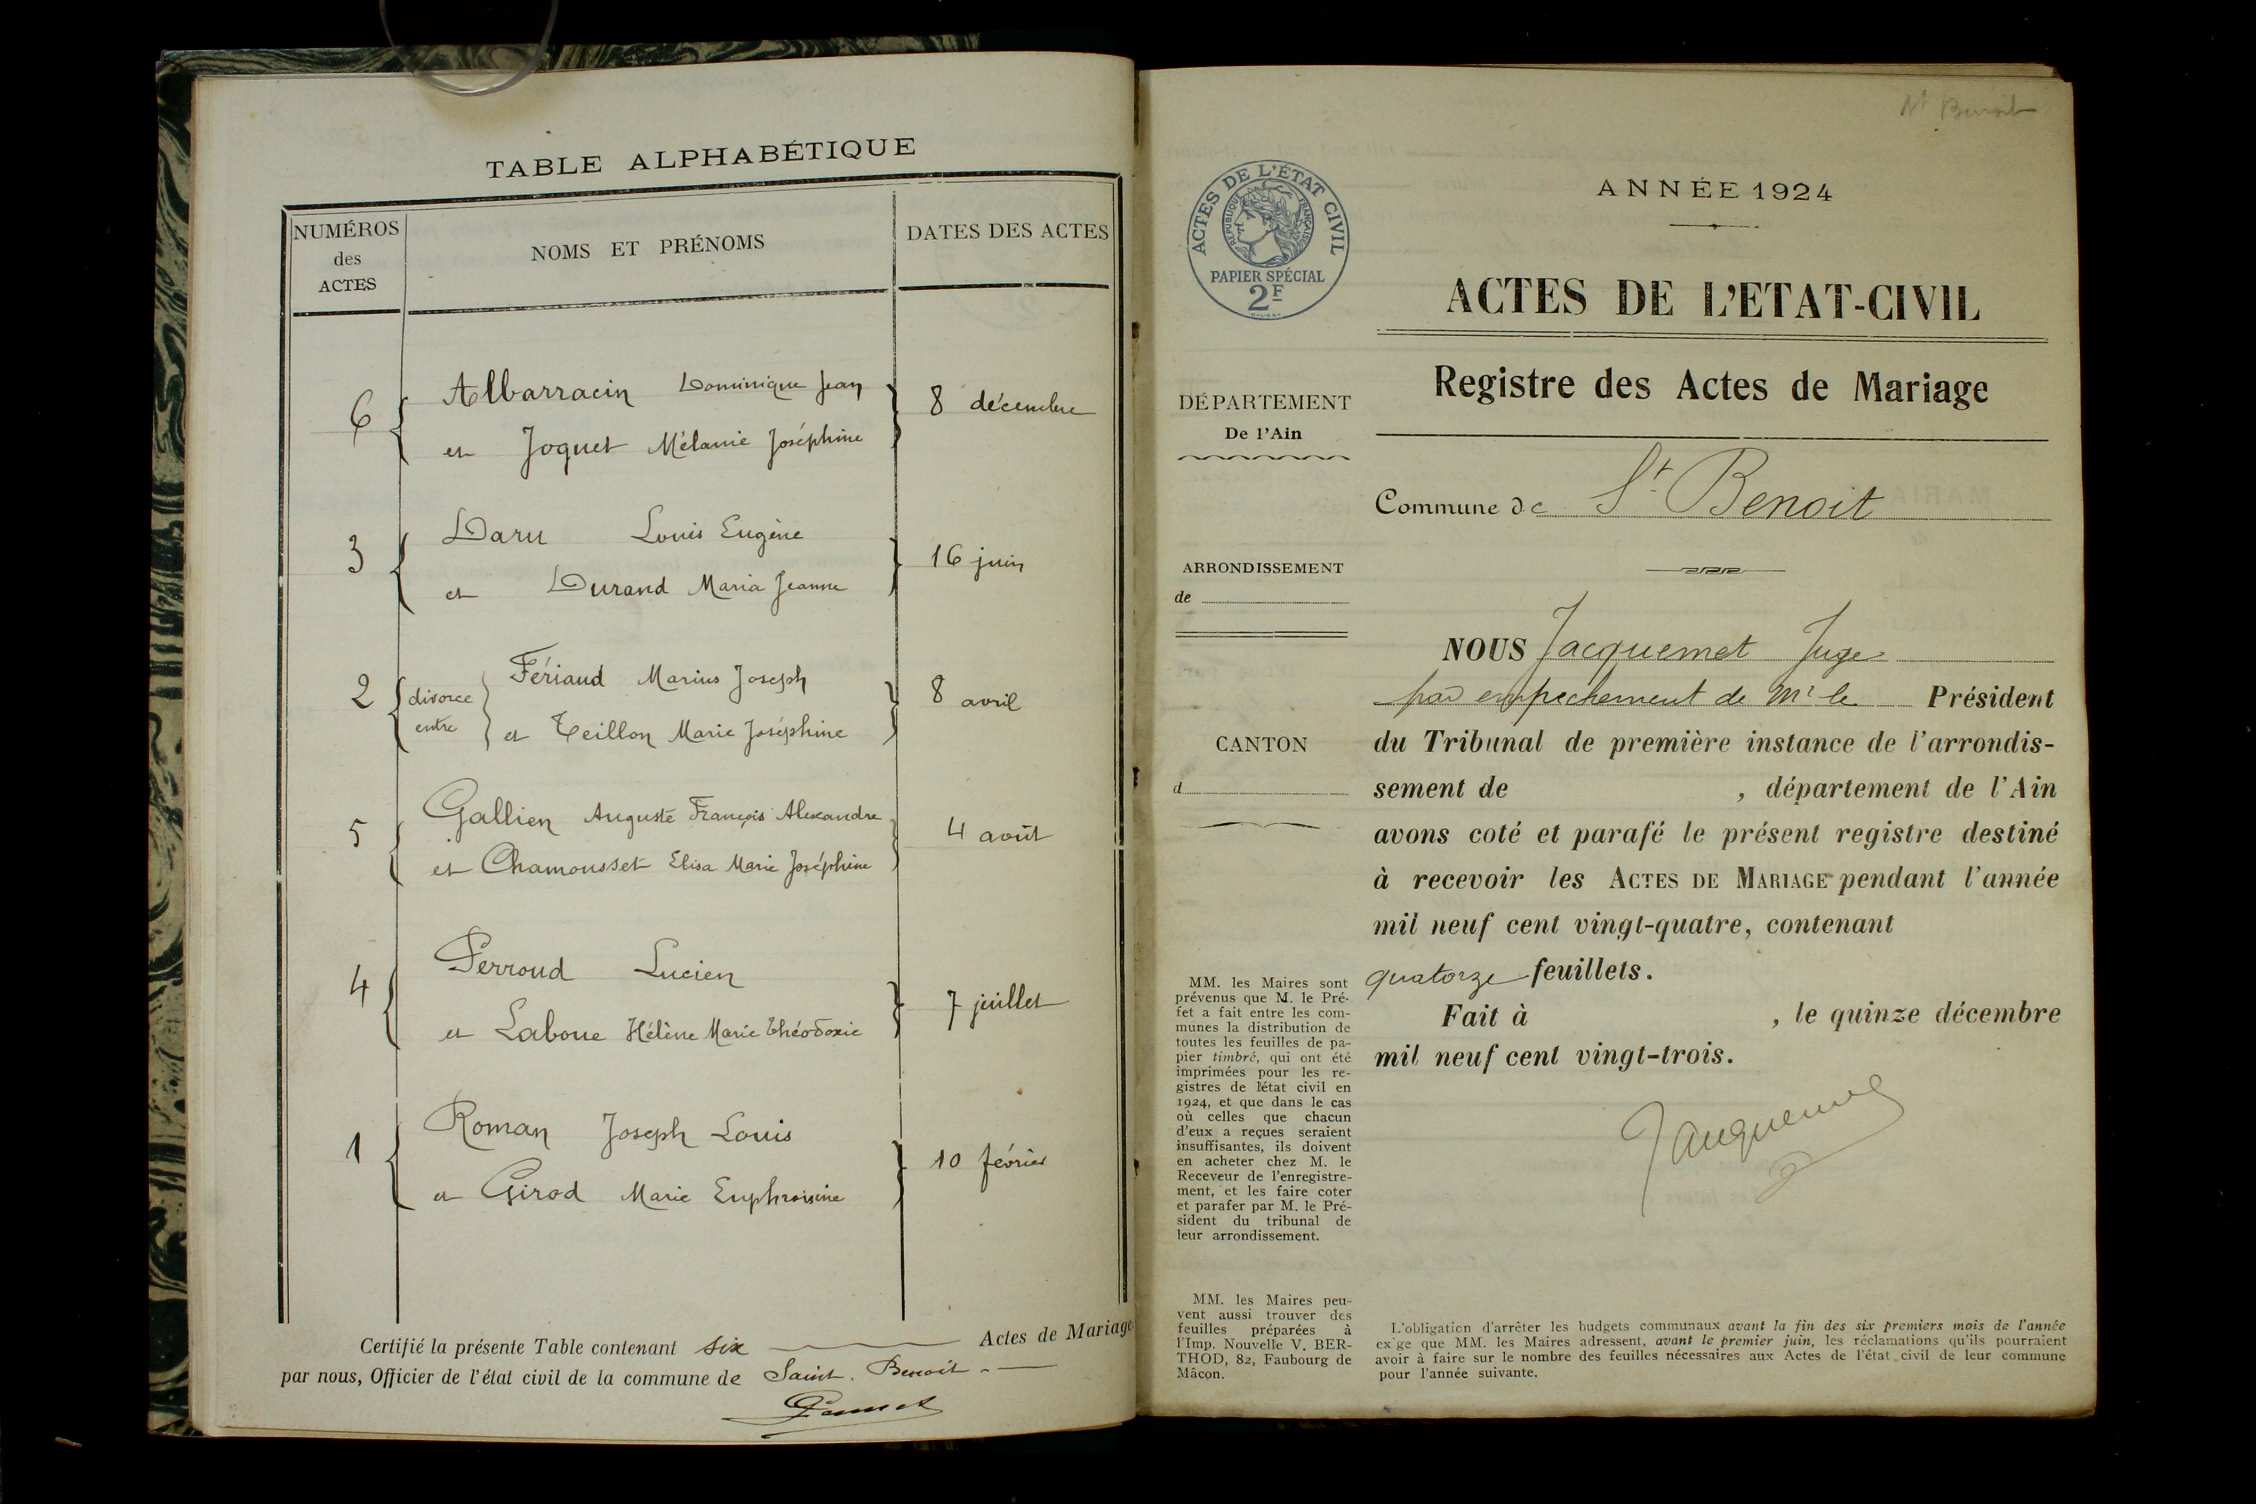 TABLE ALPHABÉTIQUE
NUMÉROS
des
ACTES
NOMS ET PRÉNOMS
DATES DES ACTES
6 Albarracin Dominique Jean
et Joquet Mélanie Joséphine
8 décembre
3 Daru Louis Eugène
et Durand Maria Jeanne
16 juin
2 divorce entre
Fériaud Marius Joseph
et Teillon Marie Joséphine
8 avril
5 Gallien Auguste François Alexandre
et Chamousset Elisa Marie Joséphine
4 août
4 Perroud Lucien
et Laboue Hélène Marie Théodoxie
7 juillet
1 Roman Joseph Louis
et Girod Marie Euphrosine
10 février
Certifié la présente Table contenant six Actes de Mariage
par nous, Officier de l'état civil de la commune de Saint. Benoit.
St Benoit
ACTES DE L'ÉTAT CIVIL
RÉPUBLIQUE FRANÇAISE
PAPIER SPÉCIAL
2F
DÉPARTEMENT
De l'Ain
ARRONDISSEMENT
de
CANTON
d
MM. les Maires sont
prévenus que M. le Pré-
fet a fait entre les com-
munes la distribution de
toutes les feuilles de pa-
pier timbré, qui ont été
imprimées pour les re-
gistres de l'état civil en
1924, et que dans le cas
où celles que chacun
d'eux a reçues seraient
insuffisantes, ils doivent
en acheter chez M. le
Receveur de l'enregistre-
ment, et les faire coter
et parafer par M. le Pré-
sident du tribunal de
leur arrondissement.
MM. les Maires peu-
vent aussi trouver des
feuilles préparées à
l'Imp. Nouvelle V. BER-
THOD, 82, Faubourg de
Mâcon.
ANNÉE 1924
ACTES DE L'ETAT-CIVIL
Registre des Actes de Mariage
Commune de St Benoit
NOUS Jacquemet Juge
par empechement de Mr le Président
du Tribunal de première instance de l'arrondis-
sement de , département de l'Ain
avons coté et parafé le présent registre destiné
à recevoir les ACTES DE MARIAGE pendant l'année
mil neuf cent vingt-quatre, contenant
quatorze feuillets.
Fait à , le quinze décembre
mil neuf cent vingt-trois.
Jacquemet
L'obligation d'arrêter les budgets communaux avant la fin des six premiers mois de l'année
exige que MM. les Maires adressent, avant le premier juin, les réclamations qu'ils pourraient
avoir à faire sur le nombre des feuilles nécessaires aux Actes de l'état civil de leur commune
pour l'année suivante.